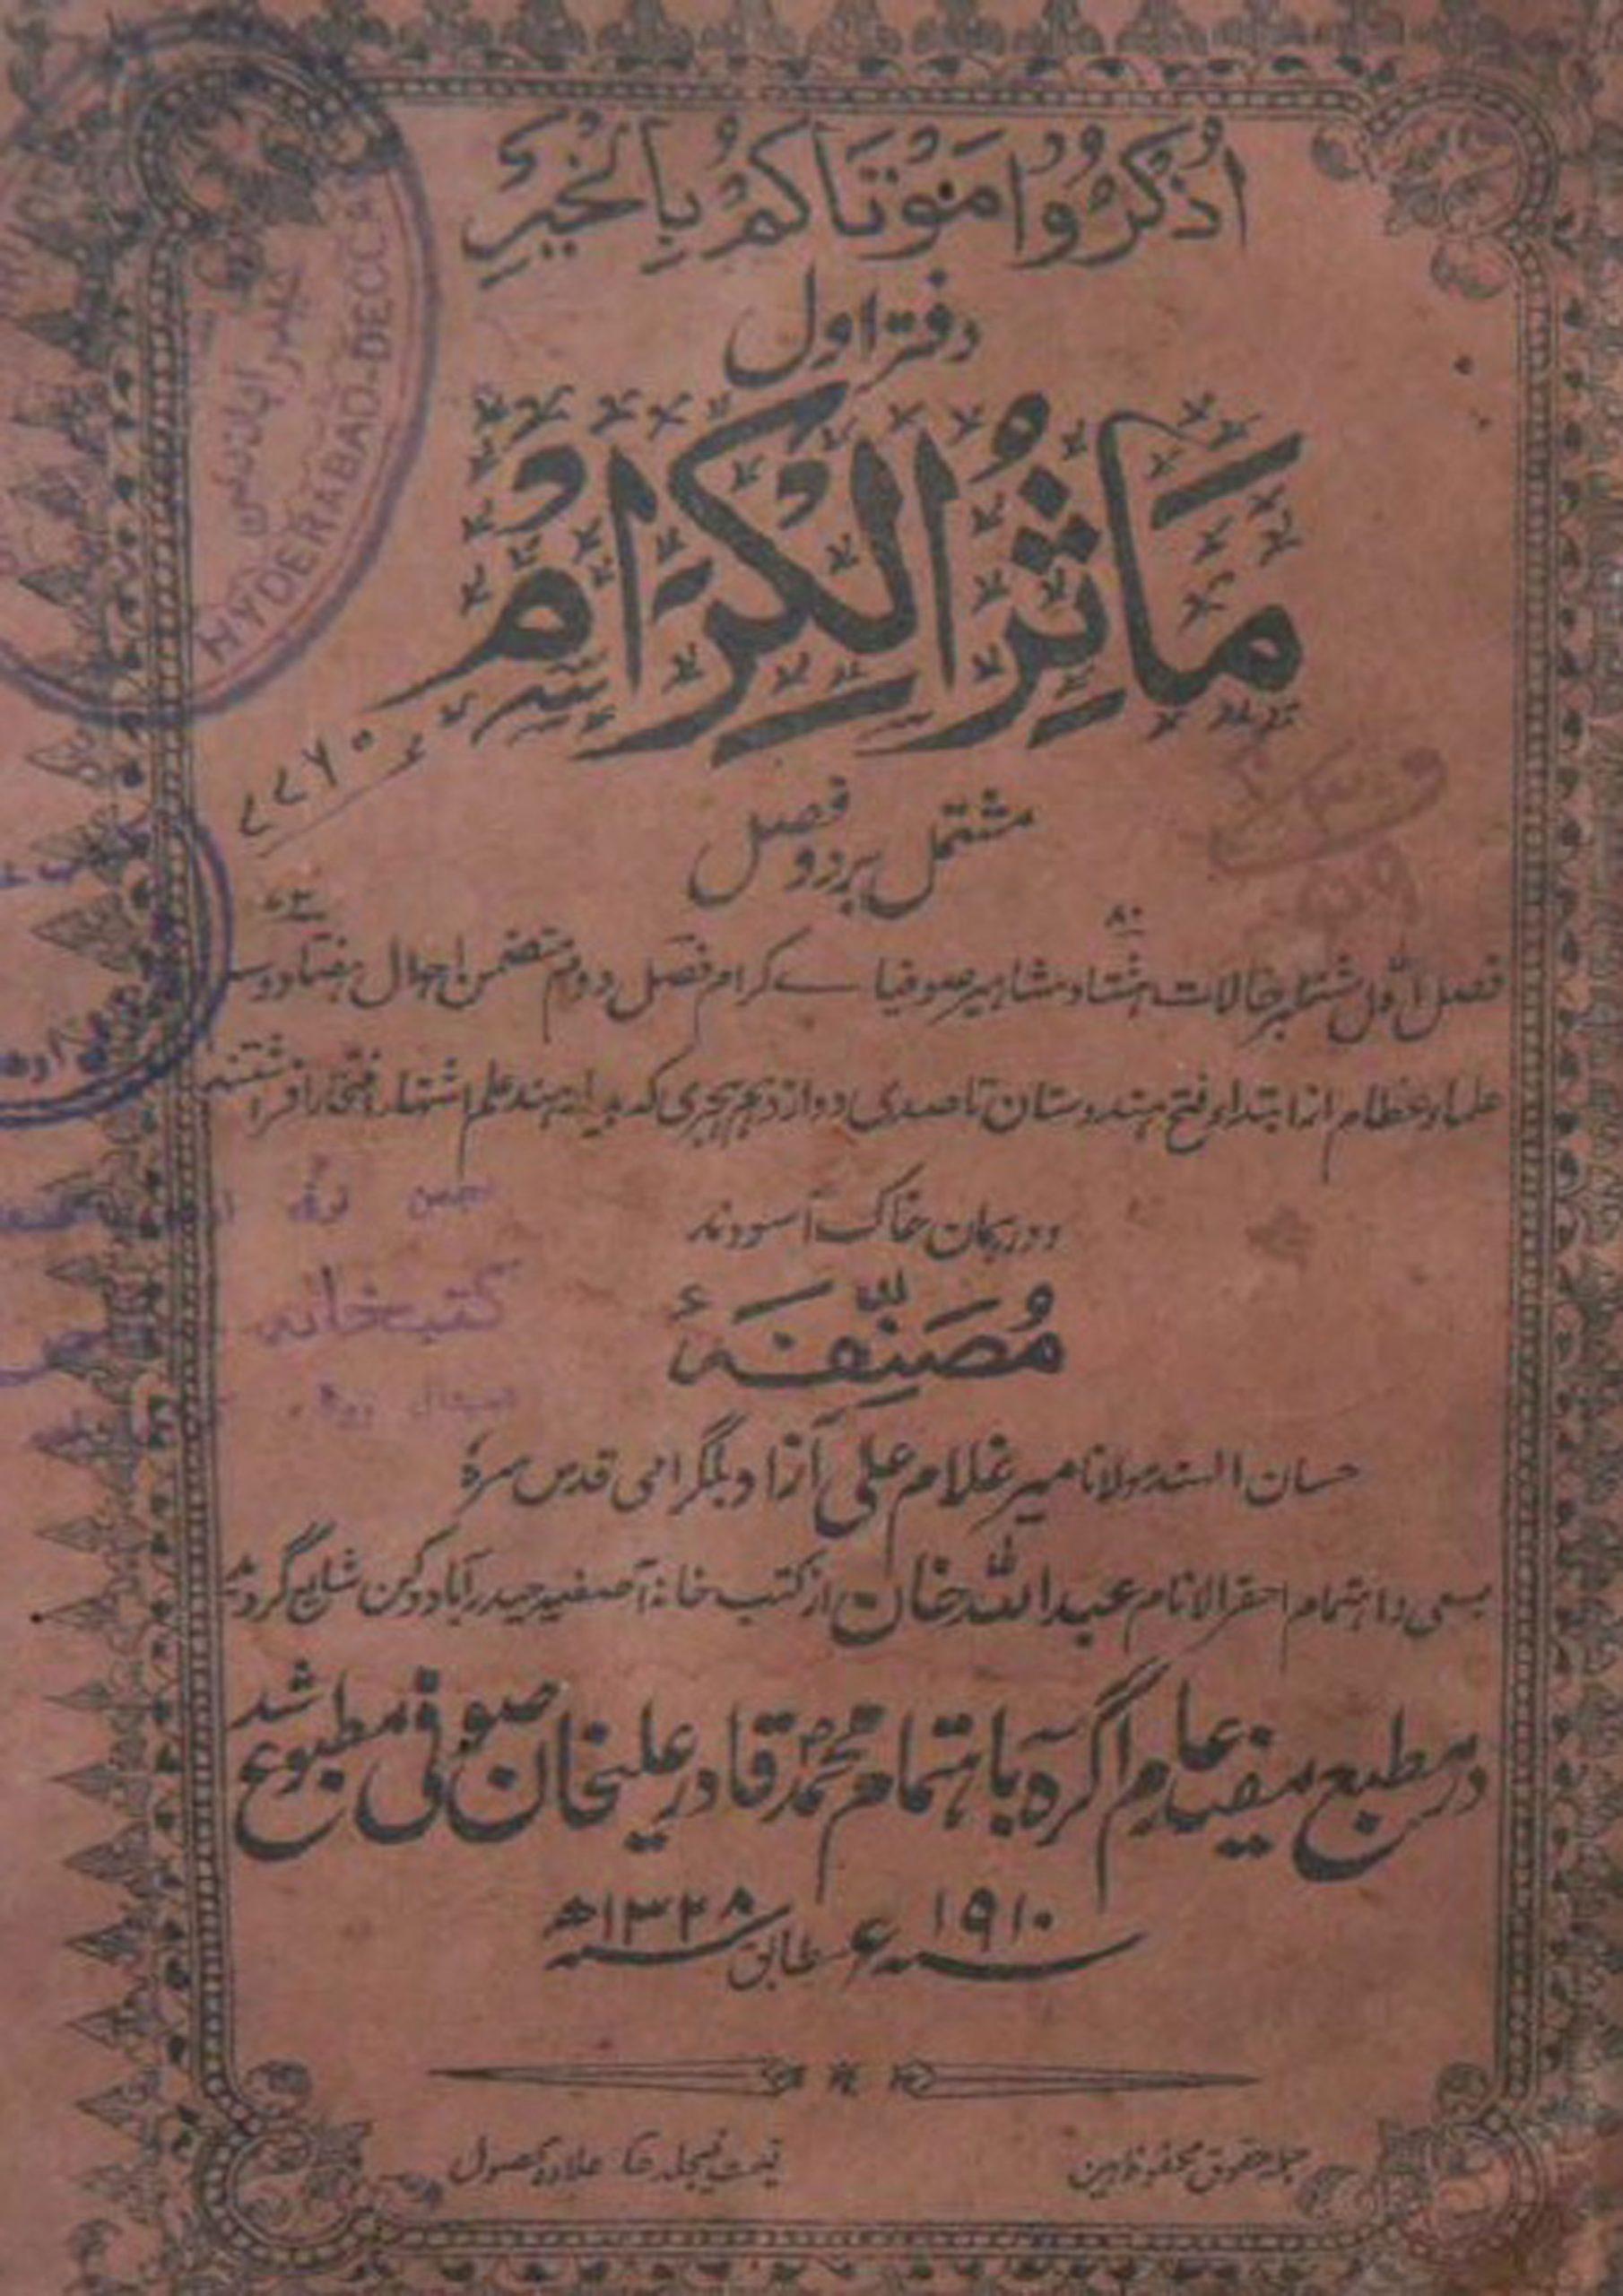 اُذْكُرُوا مَوْتَاكُمْ بِالْخَيْرِ
دفتر اول
مَآثِرُ الْكِرَامْ
مشتمل بر دو فصل
۸۰ ۷۳
فصل اول مشتملبر حالات ہشتاد مشاہیر صوفیاے کرام فصل دوم متضمن احوال ہفتاد و سہ
علماء عظام از ابتداء فتح ہندوستان تا صدی دوازدہم ہجری کہ بدیار ہند علم اشتہار و افتخار افراشتند
و در ہمان خاک آسودند
مُصَنِّفَۂ
حسان الہند مولانا میر غلام علی آزاد بلگرامی قدس سرہٗ
بسعی و اہتمام احقر الانام عبداللہ خان از کتب خانۂ آصفیہ حیدرآباد دکن شایع گردید
در مطبع مفید عام آگرہ باہتمام محمد قادر علیخان صوفی مطبوع شد
سنہ ۱۹۱۰ ء مطابق سنہ ۱۳۲۸ھ
جملہ حقوق محفوظ ہین
قیمت فیجلد علاوہ محصول
HYDERABAD-DECCAN
حیدرآباد دکن
کتب خانہ